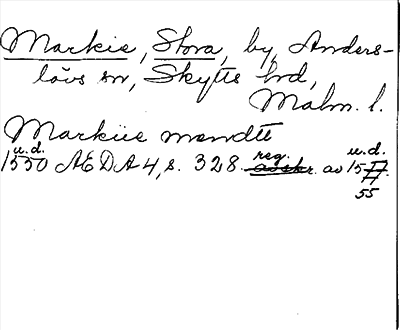 Markie, Stora, by, Anders-
lövs sn, Skytts hd,
Malm. l.
Markiie mandtt
u.d. reg. u.d.
1550 AEDA 4, s. 328. avskr. av 15
55